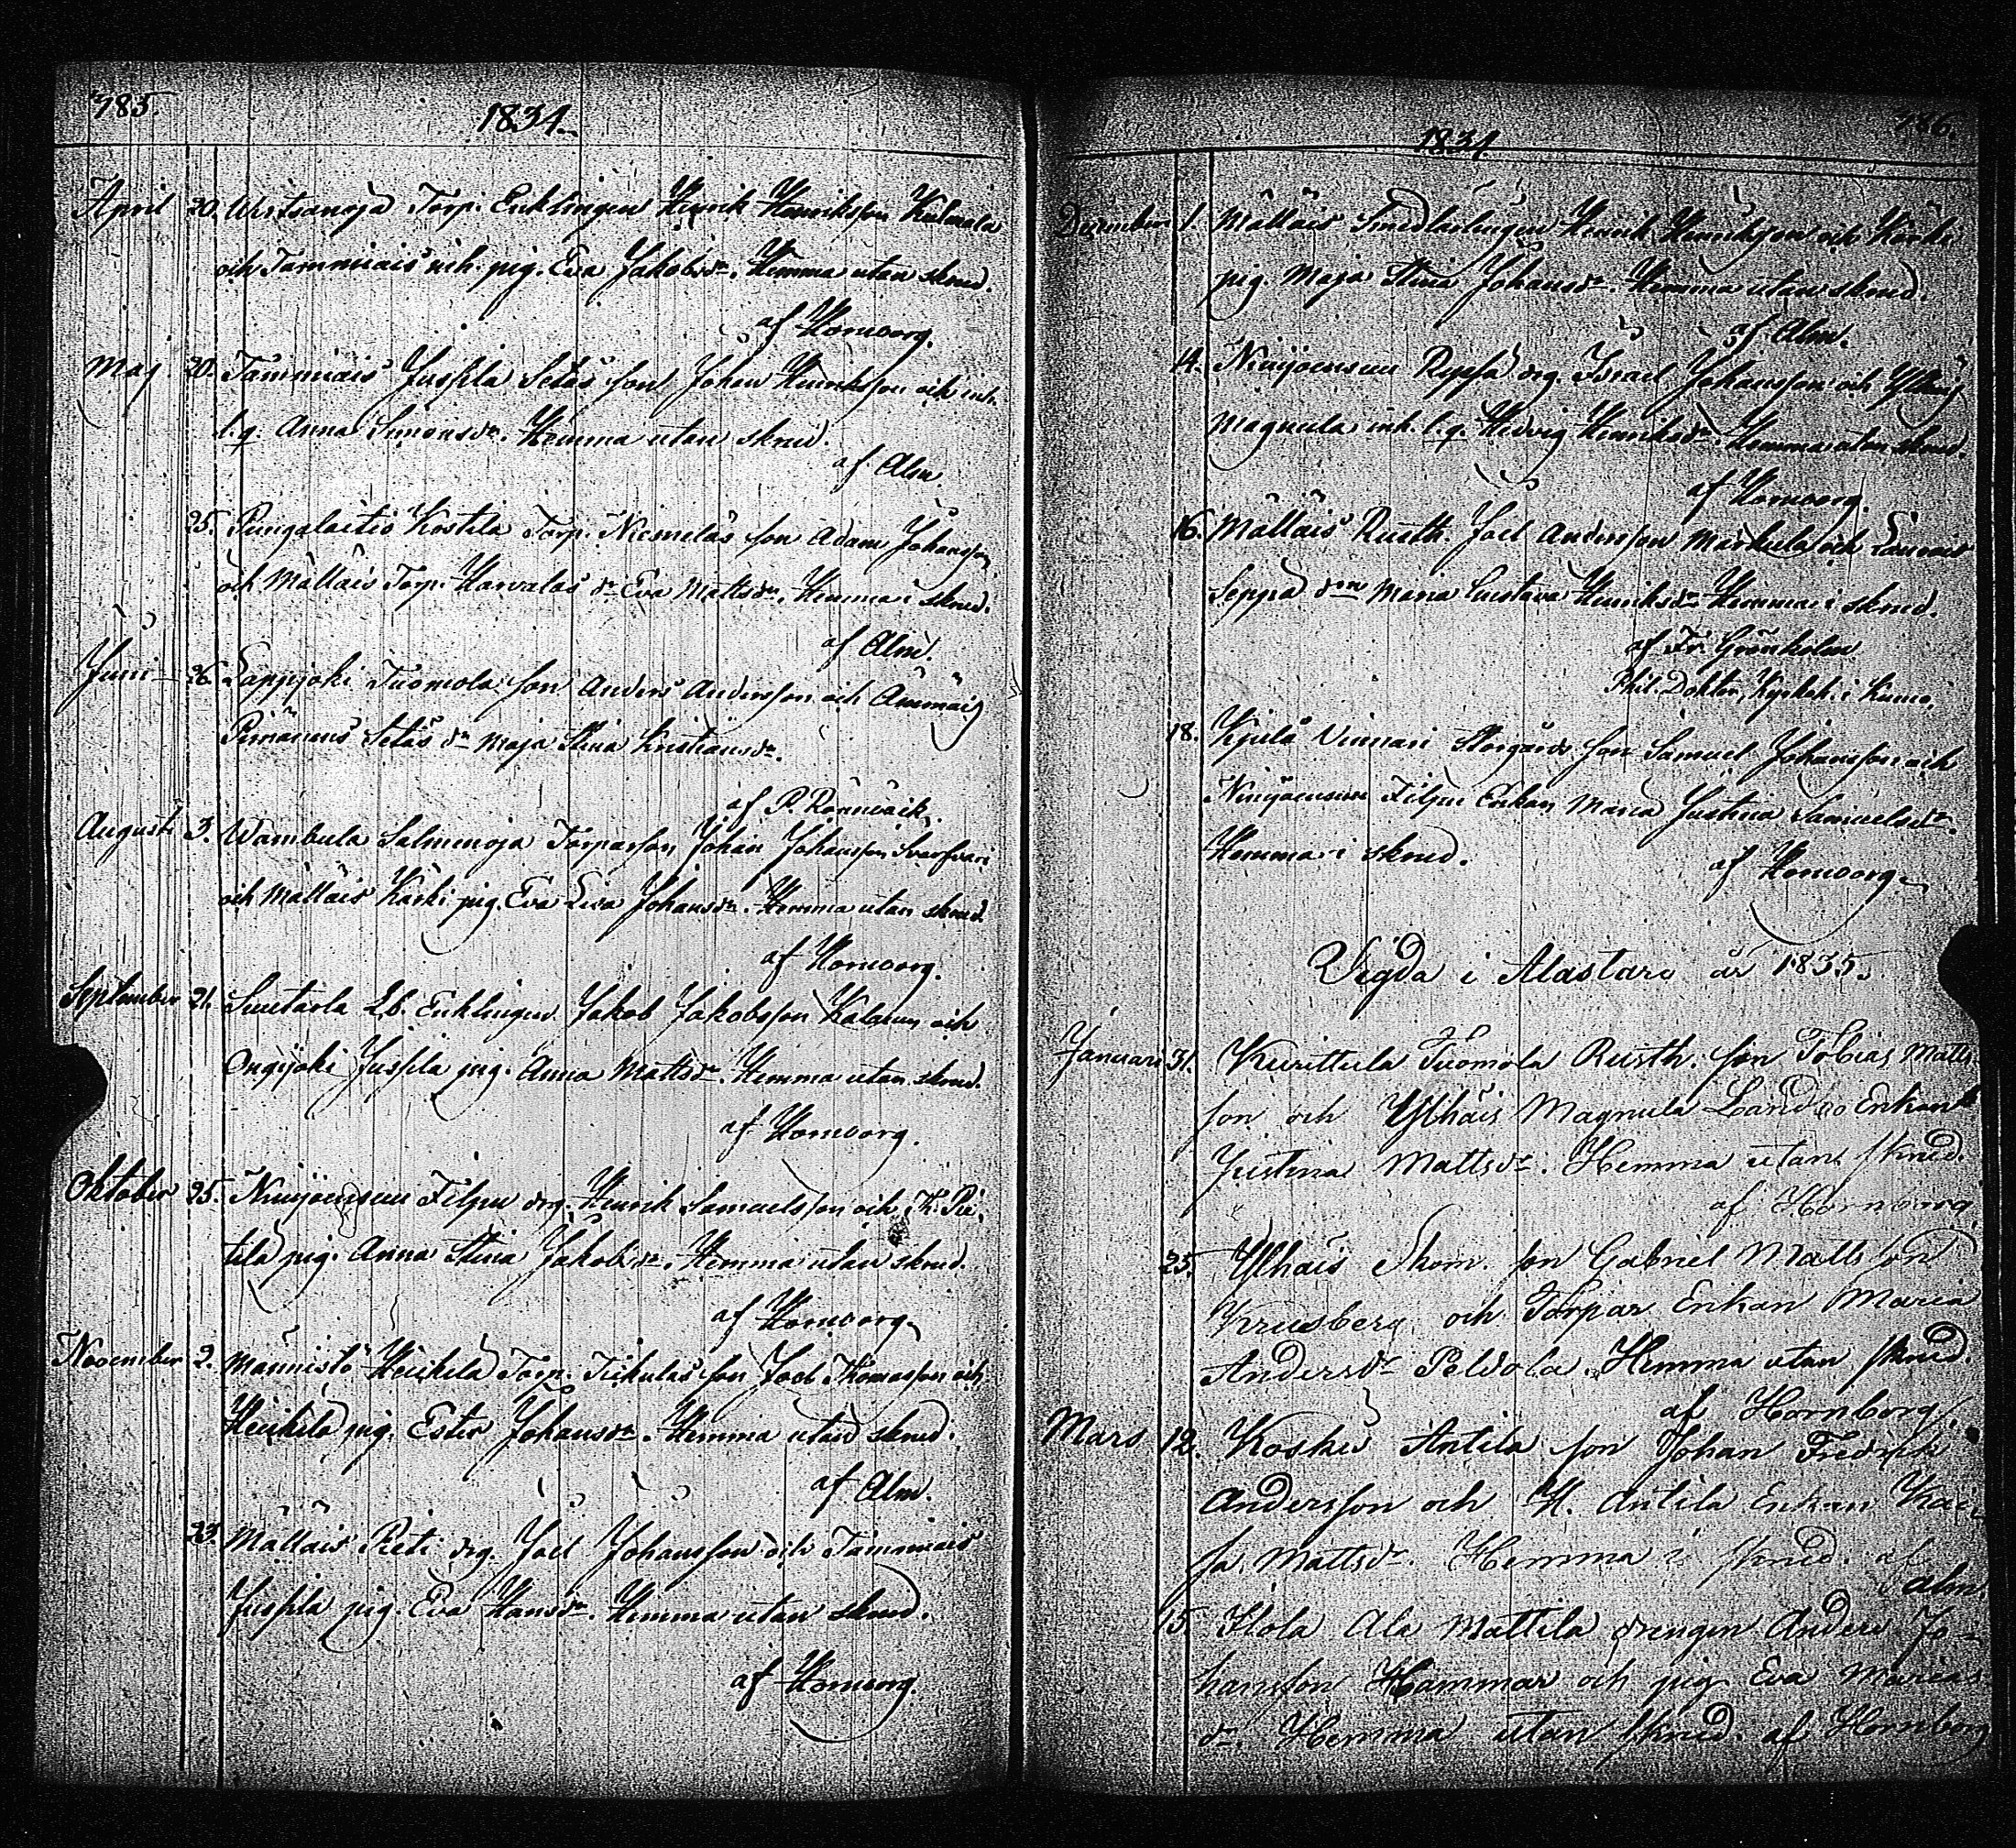 785.
1834.
April 20. Torp. Enklingen Henrik Henriksson
och Tammiais inh. pig. Eva Jakobsdr. Hemma utan skrud.
af Hornborg.
Maj 20. Tammiais Jussila Setås son Johan Henriksson och inh.
l. q. Anna Simonsdr. Hemma utan skrud.
af Alm.
25. Pungalaitio Kostila Torp. Niemeläs son Adam Johansson
och Mälläis Torp. Harvalas dr Eva Mattsdr. Hemma i skrud.
af Alm.
Juni 26. Lappijoki Tuomola son Anders Andersson och Ämmäis
Setås dr Maja Stina Kristiansdr.
af P. Rönnbäck.
Augusti 3. Wambula Salmenoja Torparson Johan Johansson
och Mälläis Kärki pig. Eva Lisa Johansdr. Hemma utan skrud.
af Hornborg.
September 21. Suutarla Lb. Enklingen Jakob Jakobsson och
Ongijoki Jussila pig. Anna Mattsdr. Hemma utan skrud.
af Hornborg.
Oktober 25. Ninijoensuu Filpu drg. Henrik Samuelsson och K. Pie-
tilä pig. Anna Stina Jakobsdr. Hemma utan skrud.
af Hornborg.
November 2. Männistö Heikelä Torp. son Job Thomasson och
Heikilä pig. Ester Johansdr. Hemma utan skrud.
af Alm.
23. Mälläis Rieti drg. Joel Johansson och Tammiais
Jussila pig. Eva Hansdr. Hemma utan skrud.
af Hornborg.
786.
1834
December 1. Mälläis Henrik Henriksson och Kärki
pig. Maja Stina Johansdr. Hemma utan skrud.
af Alm.
14. Ninijoensuu drg. Israel Johansson och Ylhäis
Magnula inh. l. q. Hedvig Henriksdr. Hemma utan skrud.
af Hornborg.
16. Mälläis Rusth. Joel Andersson Markula och
Seppä Maria Gustava Henriksdr Hemma i skrud.
af Fr. Grönholm
Phil. Doktor, Kyrkoh. i Kumo.
18. Kjulå Vinnari Storgårds son Samuel Johansson och
Ninijoensuu Filpu Enkan Maria Justina Samuelsdr.
Hemma i skrud.
af Hornborg.
Vigda i Alastaro år 1835.
Januari 31. Kurittula Tuomola Rusth. son Tobias Matts
son och Ylhäis Magnula Landbo Enkan
Justina Mattsdr. Hemma utan skrud.
af Hornborg.
25. Ylhäis Skom. son Gabriel Mattsson
Krusberg och Torpar Enkan Maria
Andersdr Peldola. Hemma utan skrud.
af Hornborg.
Mars 12. Koskis Antila son Johan Fredrik
Andersson och H. Antila Enkan Kai-
sa Mattsdr. Hemma i skrud. af
Alm.
15. Hola Ala Mattila drengen Anders Jo-
hansson Hammar och pig. Eva Marias
dr. Hemma utan skrud. af Hornborg